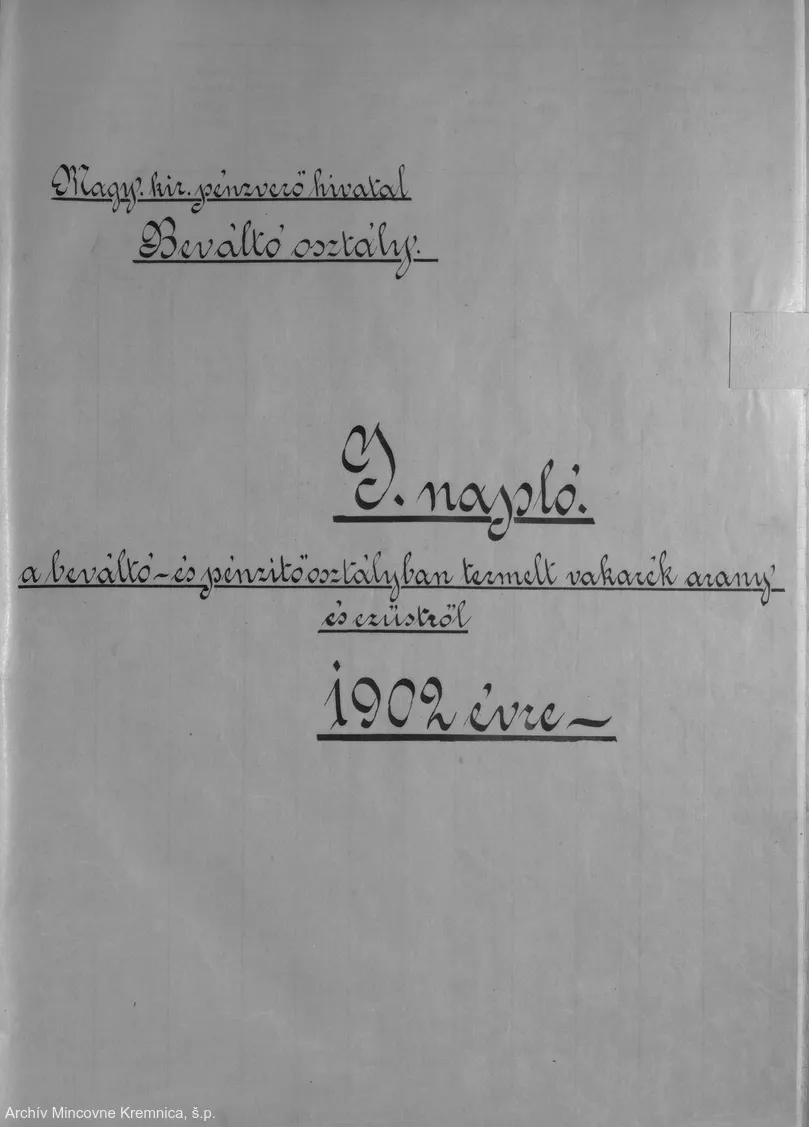 Magy. kir. pénzverő hivatal
Beváltó osztály.
I. napló.
a beváltó- és pénzitőosztályban termelt vakarék arany
és ezüstről
1902 évre-
Archív Mincovne Kremnica, š.p.